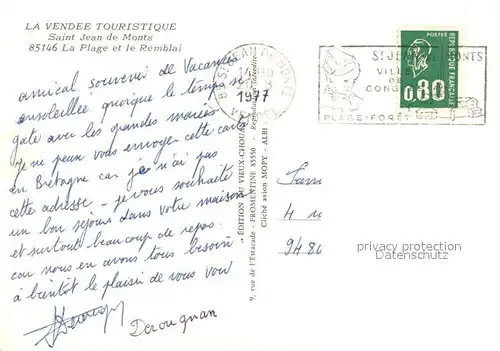 LA VENDEE TOURISTIQUE
Saint Jean de Monts
85146 La Plage et le Remblai
amical souvenir de Vacances
ensoleillée quoique le temps se
gate avec les grandes marées
Je ne peux vous envoyer cette carte
en Bretagne car je n'ai pas
cette adresse - je vous souhaite
un bon séjours dans votre maison
et surtout beaucoup de repos.
car nous en avons tous besoin
à bientôt le plaisir de vous voir
Derougnan
ÉDITION DU VIEUX-CHOUAN
9, rue de l'Estacade - FROMENTINE 85550 - Reproduction interdite
Cliché avion MOPY - ALBI
ST JEAN DE MONTS
1977
ST JEAN DE MONTS
VILLE
DE
CONG
PLAGE-FORÊT
POSTES
0,80
REPUBLIQUE FRANÇAISE
Fam
4
9480
privacy protection
Datenschutz